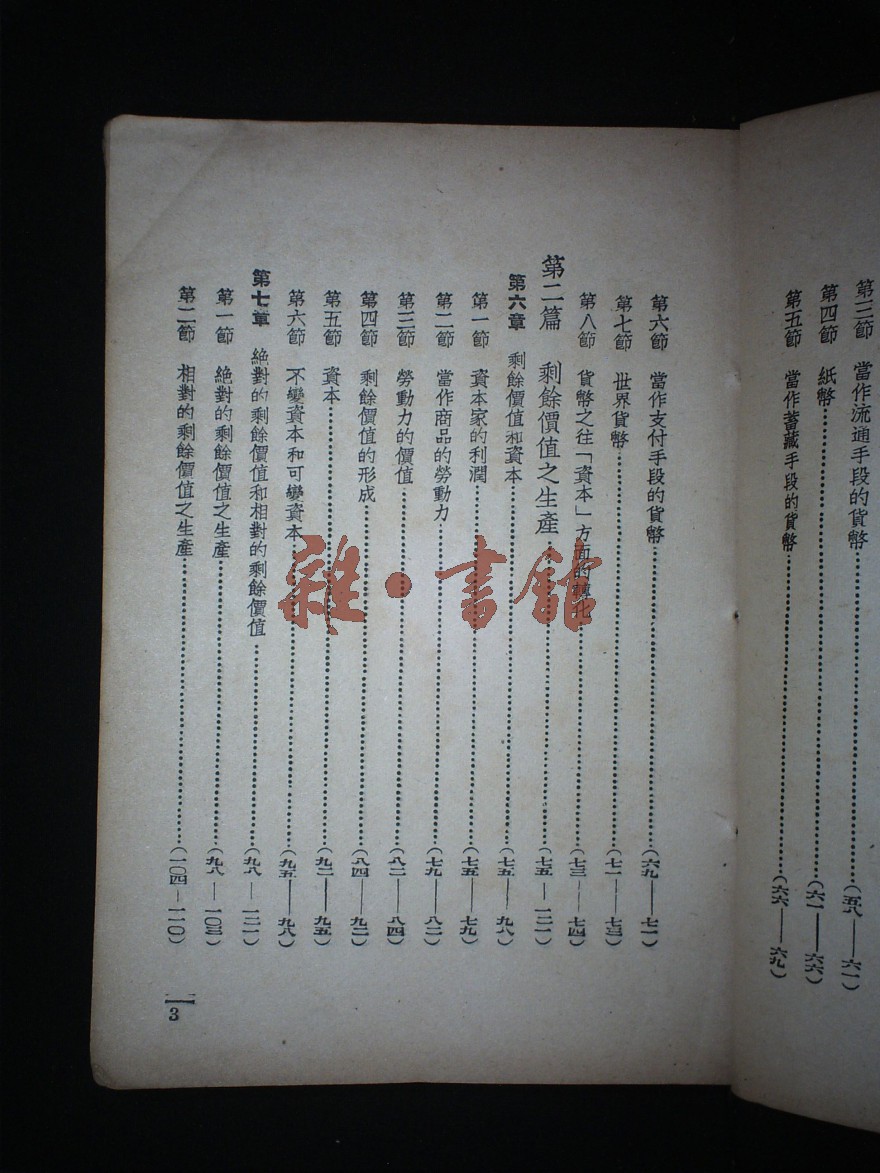 第三節 當作流通手段的貨幣……(五八——六一)
第四節 紙幣……(六一——六六)
第五節 當作蓄藏手段的貨幣……(六六——六九)
第六節 當作支付手段的貨幣……(六九——七一)
第七節 世界貨幣……(七一——七三)
第八節 貨幣之往「資本」方面的轉化……(七三——七四)
第二篇 剩餘價值之生產……(七五——一二一)
第六章 剩餘價值和資本……(七五——九八)
第一節 資本家的利潤……(七五——七九)
第二節 當作商品的勞動力……(七九——八二)
第三節 勞動力的價值……(八二——八四)
第四節 剩餘價值的形成……(八四——九二)
第五節 資本……(九二——九五)
第六節 不變資本和可變資本……(九五——九八)
第七章 絶對的剩餘價值和相對的剩餘價值……(九八——一二一)
第一節 絶對的剩餘價值之生產……(九八——一〇三)
第二節 相對的剩餘價值之生產……(一〇四——一一〇)
3
雜·書館